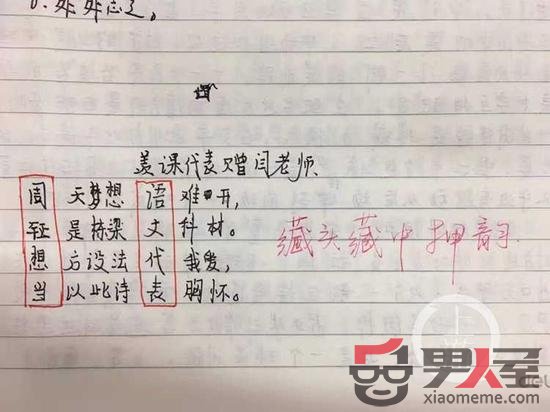 课代表赠闫老师
周天梦想语难开,
是栋梁文科材。
想方设法代我爱,
当以此诗表胸怀。
藏头藏中押韵
上游
男人屋
xiaomeme.com